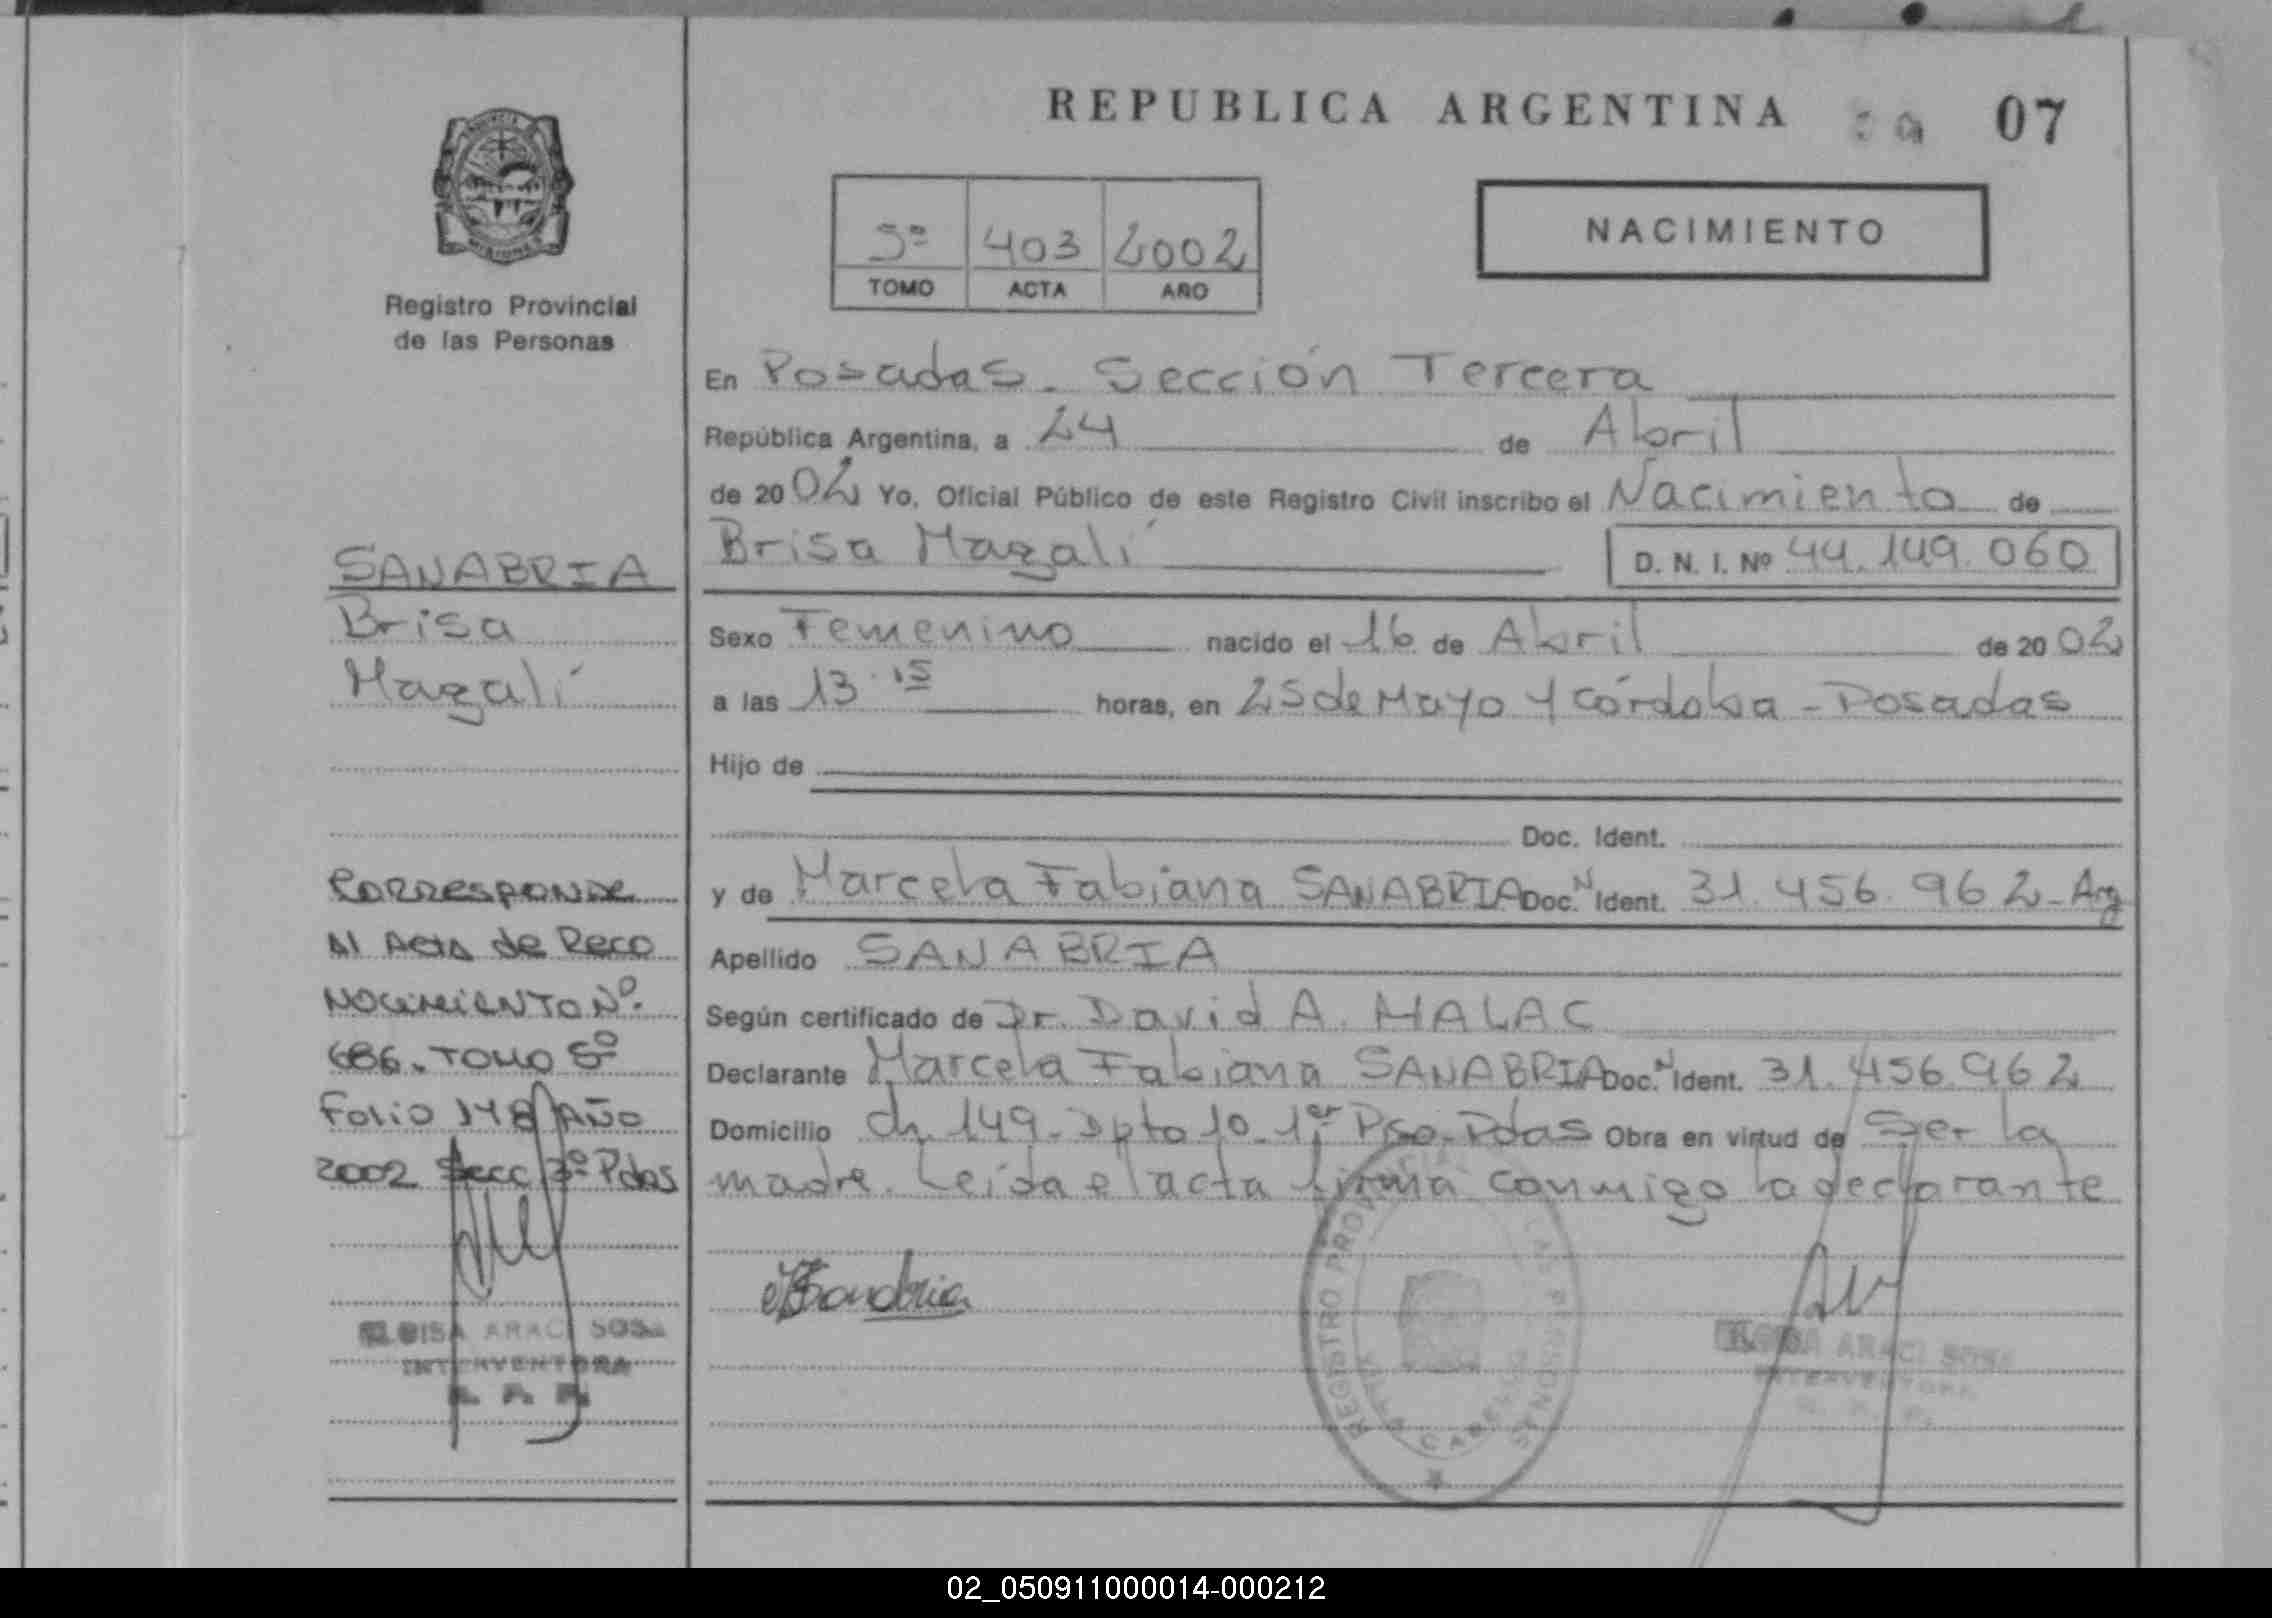 REPUBLICA ARGENTINA
07
NACIMIENTO
403 2002
TOMO ACTA AÑO
Registro Provincial
de las Personas
En Posadas. Sección Tercera
República Argentina, a 24 de Abril
de 2002 Yo, Oficial Público de este Registro Civil inscribo el Nacimiento de
Brisa Magalí D. N. I. Nº 44.149.060
Sexo Femenino nacido el 16 de Abril de 2002
a las 13.15 horas, en 25 de Mayo y Córdoba - Posadas
Hijo de
Doc. Ident.
y de Marcela Fabiana SANABRIA Doc. N Ident. 31.456.962 - Arg
Apellido SANABRIA
Según certificado de Dr. David A. MALAC
Declarante Marcela Fabiana SANABRIA Doc. N Ident. 31.456.962
Domicilio ch. 149. Dpto 10. 1er Piso. Pdas Obra en virtud de Ser la
madre. Leída el acta firma conmigo la declarante
SANABRIA
Brisa
Magalí
CORRESPONDE
Al Acta de Reco
NOCIMIENTO Nº
686. TOMO 5º
Folio 148 AÑO
2002 Secc 3º Pdas
ELOISA ARACI SOSA
INTERVENTORA
R. P. P.
Sanabria
REGISTRO PROVINCIAL
LAS PERSONAS
ELOISA ARACI SOSA
INTERVENTORA
02_050911000014-000212